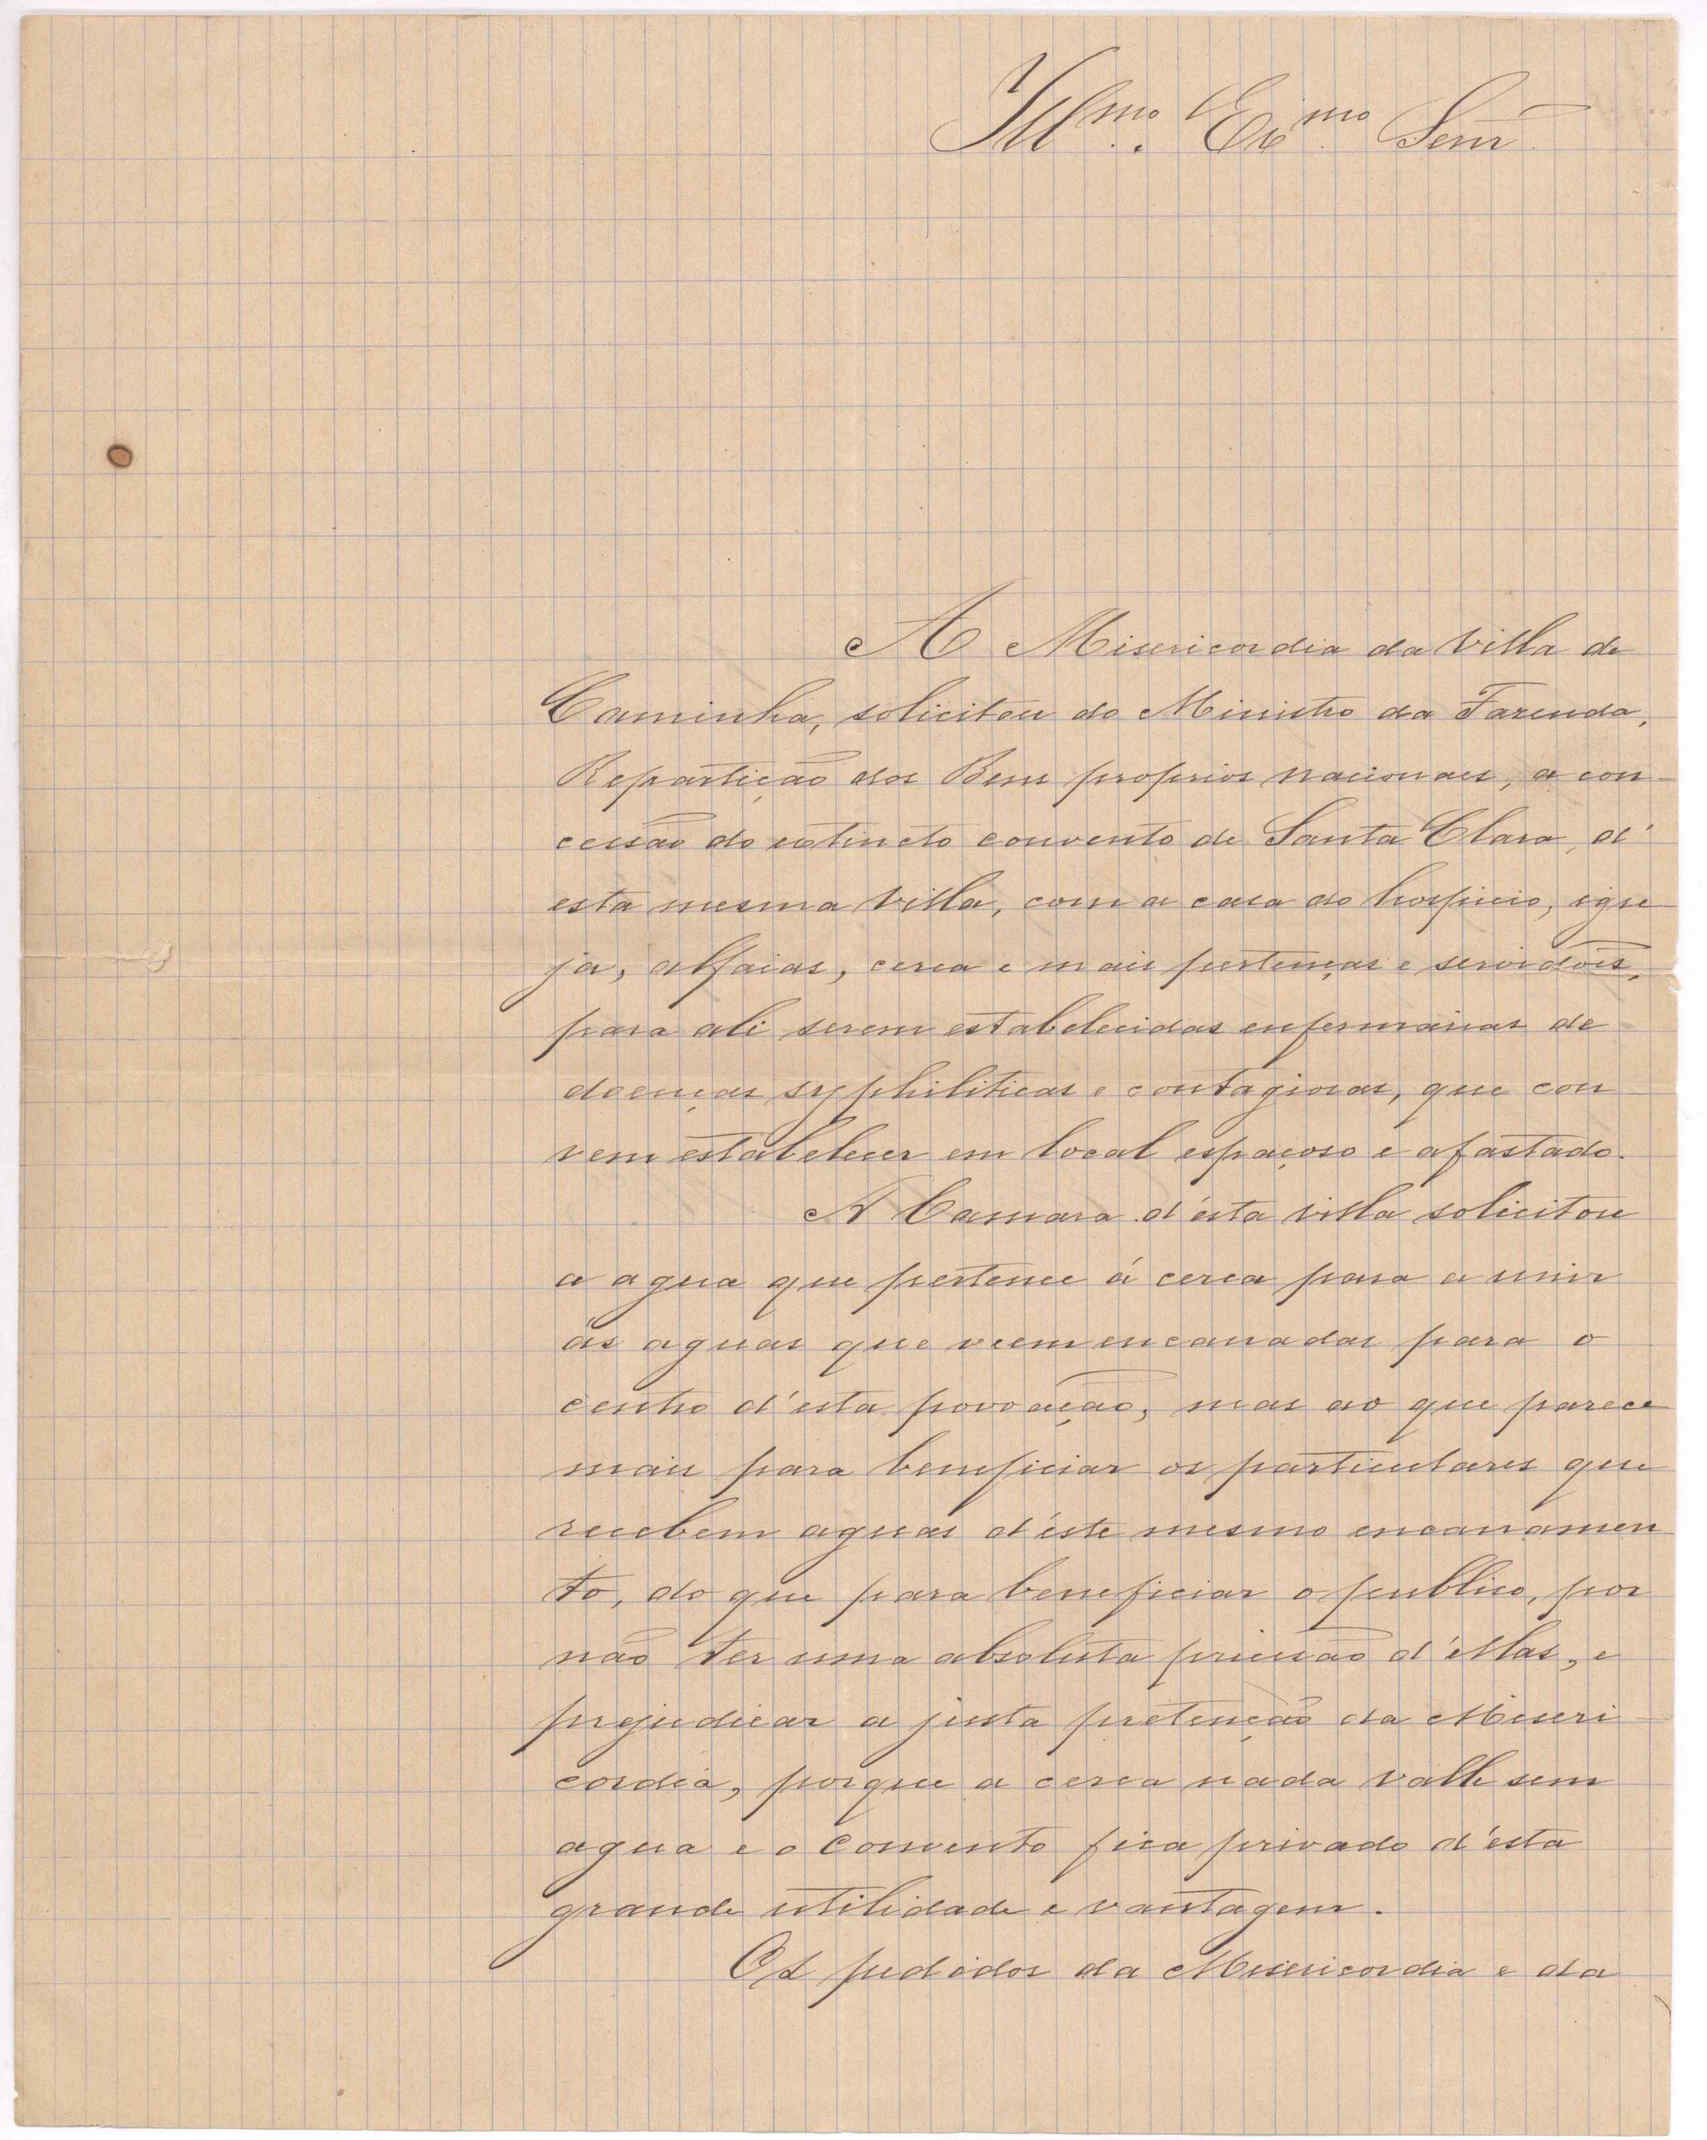 Ill.mo Ex.mo Senr
A Misericordia da Villa de
Caminha, solicitou do Ministro da Fazenda,
Repartição dos Bens proprios nacionaes, a con-
cessão do extincto convento de Santa Clara, d'
esta mesma Villa, com a casa do hospicio, igre
ja, alfaias, cerca e mais pertenças e servidões,
para ali serem estabelecidas enfermarias de
doenças syphiliticas e contagiosas, que con
vem estabelecer em local espaçoso e afastado.
A Camara d'esta villa solicitou
a agua que pertence á cerca para a unir
ás aguas que veem encanadas para o
centro d'esta povoação, mas ao que parece
mais para beneficiar os particulares que
recebem aguas d'este mesmo encanamen
to, do que para beneficiar o publico, por
não ter uma absoluta precisão d'ellas, e
prejudicar a justa pretenção da Miseri
cordia, porque a cerca nada valle sem
agua e o Convento fica privado d'esta
grande utilidade e vantagem.
Os pedidos da Misericordia e da